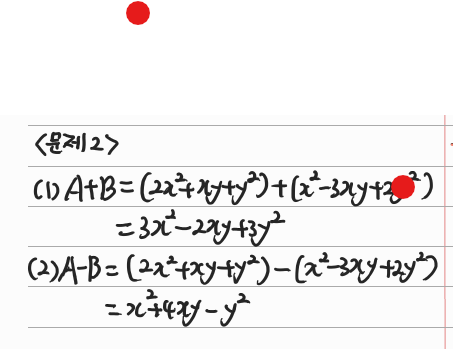 <문제2>
(1) A+B=(2x²+xy+y²)+(x²-3xy+2y²)
=3x²-2xy+3y²
(2) A-B=(2x²+xy+y²)-(x²-3xy+2y²)
=x²+4xy-y²